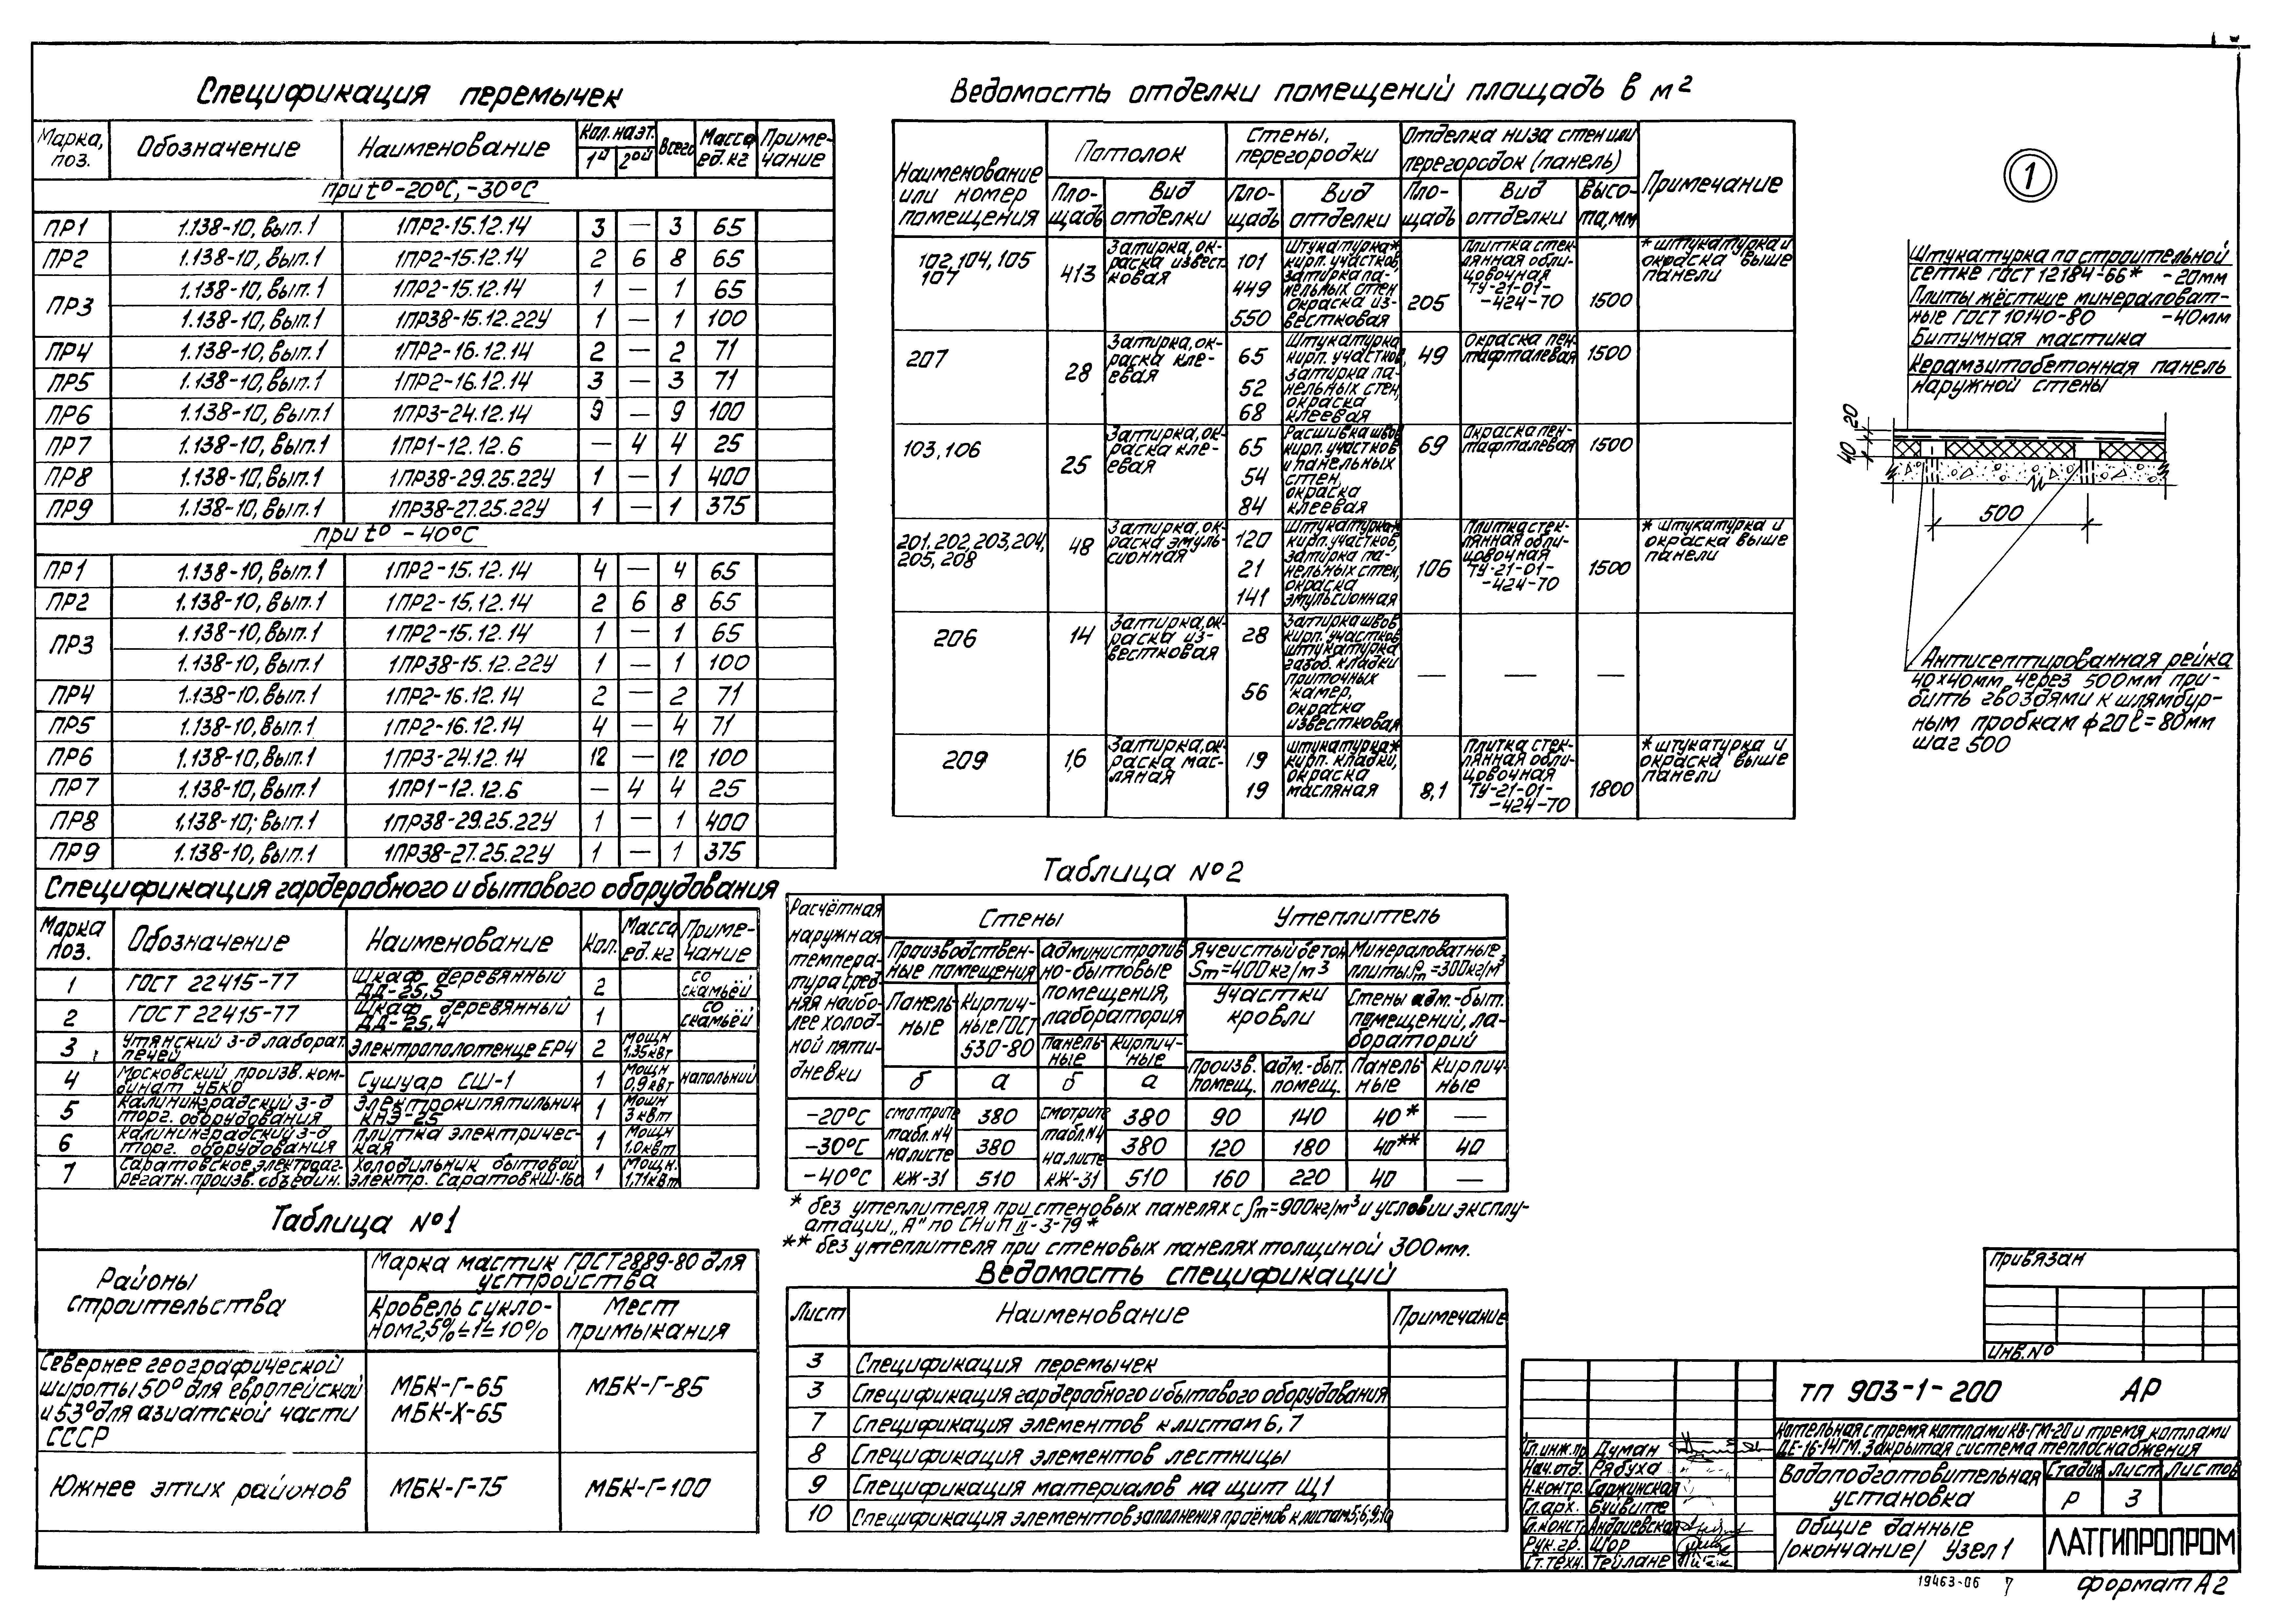 Спецификация перемычек
Марка, поз. | Обозначение | Наименование | Кол. на эт. 1й 2ой | Всего | Масса ед. кг | Примечание
при t° -20°С, -30°С
ПР1 1.138-10, вып.1 1ПР2-15.12.14 3 — 3 65
ПР2 1.138-10, вып.1 1ПР2-15.12.14 2 6 8 65
ПР3 1.138-10, вып.1 1ПР2-15.12.14 1 — 1 65
1.138-10, вып.1 1ПР38-15.12.22У 1 — 1 100
ПР4 1.138-10, вып.1 1ПР2-16.12.14 2 — 2 71
ПР5 1.138-10, вып.1 1ПР2-16.12.14 3 — 3 71
ПР6 1.138-10, вып.1 1ПР3-24.12.14 9 — 9 100
ПР7 1.138-10, вып.1 1ПР1-12.12.6 — 4 4 25
ПР8 1.138-10, вып.1 1ПР38-29.25.22У 1 — 1 400
ПР9 1.138-10, вып.1 1ПР38-27.25.22У 1 — 1 375
при t° -40°С
ПР1 1.138-10, вып.1 1ПР2-15.12.14 4 — 4 65
ПР2 1.138-10, вып.1 1ПР2-15.12.14 2 6 8 65
ПР3 1.138-10, вып.1 1ПР2-15.12.14 1 — 1 65
1.138-10, вып.1 1ПР38-15.12.22У 1 — 1 100
ПР4 1.138-10, вып.1 1ПР2-16.12.14 2 — 2 71
ПР5 1.138-10, вып.1 1ПР2-16.12.14 4 — 4 71
ПР6 1.138-10, вып.1 1ПР3-24.12.14 12 — 12 100
ПР7 1.138-10, вып.1 1ПР1-12.12.6 — 4 4 25
ПР8 1.138-10, вып.1 1ПР38-29.25.22У 1 — 1 400
ПР9 1.138-10, вып.1 1ПР38-27.25.22У 1 — 1 375
Спецификация гардеробного и бытового оборудования
Марка поз. | Обозначение | Наименование | Кол. | Масса ед. кг | Примечание
1 ГОСТ 22415-77 Шкаф деревянный ДД-25,5 2 со скамьёй
2 ГОСТ 22415-77 Шкаф деревянный ДД-25,4 1 со скамьёй
3 Утянский з-д лаборат. печей Электрополотенце ЕР4 2 Мощн 1,35кВт
4 Московский произв. комбинат УБКО Сушуар СШ-1 1 Мощн 0,9кВт напольный
5 Калининградский з-д торг. оборудования Электрокипятильник КНЭ-25 1 Мощн 3кВт
6 Калининградский з-д торг. оборудования Плитка электрическая 1 Мощн 1,0кВт
7 Саратовское электроагрегатн. произв. объедин. Холодильник бытовой электр. Саратов КШ-160 1 Мощн. 1,71кВт
Таблица №1
Районы строительства | Марка мастик ГОСТ 2889-80 для устройства
Кровель с уклоном 2,5% ≤ i ≤ 10% | Мест примыкания
Севернее географической
широты 50° для европейской
и 53° для азиатской части
СССР
МБК-Г-65
МБК-Х-65
МБК-Г-85
Южнее этих районов МБК-Г-75 МБК-Г-100
Ведомость отделки помещений площадь в м²
Наименование или номер помещения | Потолок | Стены, перегородки | Отделка низа стен или перегородок (панель) | Примечание
Площадь | Вид отделки | Площадь | Вид отделки | Площадь | Вид отделки | Высота, мм
102, 104, 105 107 | 413 | Затирка, окраска известковая | 101 449 550 | Штукатурка* кирп. участков, затирка панельных стен окраска известковая | 205 | Плитка стеклянная облицовочная ТУ-21-01-424-70 | 1500 | * штукатурка и окраска выше панели
207 | 28 | Затирка, окраска клеевая | 65 52 68 | Штукатурка кирп. участков, затирка панельных стен, окраска клеевая | 49 | Окраска пентафталевая | 1500
103, 106 | 25 | Затирка, окраска клеевая | 65 54 84 | Расшивка швов кирп. участков и панельных стен, окраска клеевая | 69 | Окраска пентафталевая | 1500
201, 202, 203, 204, 205, 208 | 48 | Затирка, окраска эмульсионная | 120 21 141 | Штукатурка* кирп. участков, затирка панельных стен, окраска эмульсионная | 106 | Плитка стеклянная облицовочная ТУ-21-01-424-70 | 1500 | * штукатурка и окраска выше панели
206 | 14 | Затирка, окраска известковая | 28 56 | Затирка швов кирп. участков штукатурка газоб. кладки приточных камер, окраска известковая | — | — | —
209 | 1,6 | Затирка, окраска масляная | 19 19 | штукатурка* кирп. кладки, окраска масляная | 8,1 | Плитка стеклянная облицовочная ТУ-21-01-424-70 | 1800 | * штукатурка и окраска выше панели
Таблица №2
Расчётная наружная температура средняя наиболее холодной пятидневки | Стены | Утеплитель
Производственные помещения | Административно-бытовые помещения, лаборатория | Ячеистый бетон ρm=400кг/м³ | Минераловатные плиты ρm=300кг/м³
Панельные | Кирпичные ГОСТ 530-80 | Панельные | Кирпичные | Участки кровли | Стены адм.-быт. помещений, лабораторий
б | а | б | а | Произв. помещ. | адм.-быт. помещ. | Панельные | Кирпичные
-20°С смотрите 380 смотрите 380 90 140 40* —
-30°С табл. №4 на листе 380 табл. №4 на листе 380 120 180 40** 40
-40°С КЖ-31 510 КЖ-31 510 160 220 40 —
* без утеплителя при стеновых панелях с ρm=900кг/м³ и условии эксплу-
атации „А" по СНиП II-3-79*
** без утеплителя при стеновых панелях толщиной 300мм.
Ведомость спецификаций
Лист | Наименование | Примечание
3 Спецификация перемычек
3 Спецификация гардеробного и бытового оборудования
7 Спецификация элементов к листам 6, 7
8 Спецификация элементов лестницы
9 Спецификация материалов на щит Щ1
10 Спецификация элементов заполнения проёмов к листам 5, 6, 9, 10
1
Штукатурка по строительной
сетке ГОСТ 12184-66* -20мм
Плиты жёсткие минераловат-
ные ГОСТ 10140-80 -40мм
Битумная мастика
Керамзитобетонная панель
наружной стены
20
40
500
Антисептированная рейка
40х40мм, через 500мм при-
бить гвоздями к шлямбур-
ным пробкам ϕ20 ℓ=80мм
шаг 500
Привязан
Инв. №
ТП 903-1-200 АР
Котельная с тремя котлами КВ-ГМ-20 и тремя котлами
ДЕ-16-14ГМ. Закрытая система теплоснабжения
Гл. инж. пр. Думан
Нач. отд. Рябуха
Н. контр. Саржинская
Гл. арх. Буйвите
Гл. констр. Андриевская
Рук. гр. Шор
Ст. техн. Тейлане
Водоподготовительная
установка
Стадия Лист Листов
Р 3
Общие данные
/окончание/ Узел 1
ЛАТГИПРОПРОМ
19463-06 7
формат А2